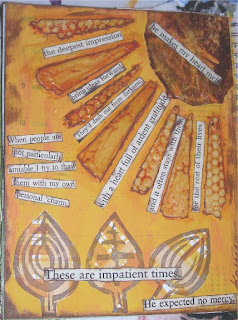 he makes my heart melt
the deepest impression
bring ideas forward
They'd dash out from darkness
with a heart full of ardent gratitude
and it often stays with them
for the rest of their lives
When people are
not particularly
amiable I try to thaw
them with my own
personal charm.
These are impatient times.
He expected no mercy.